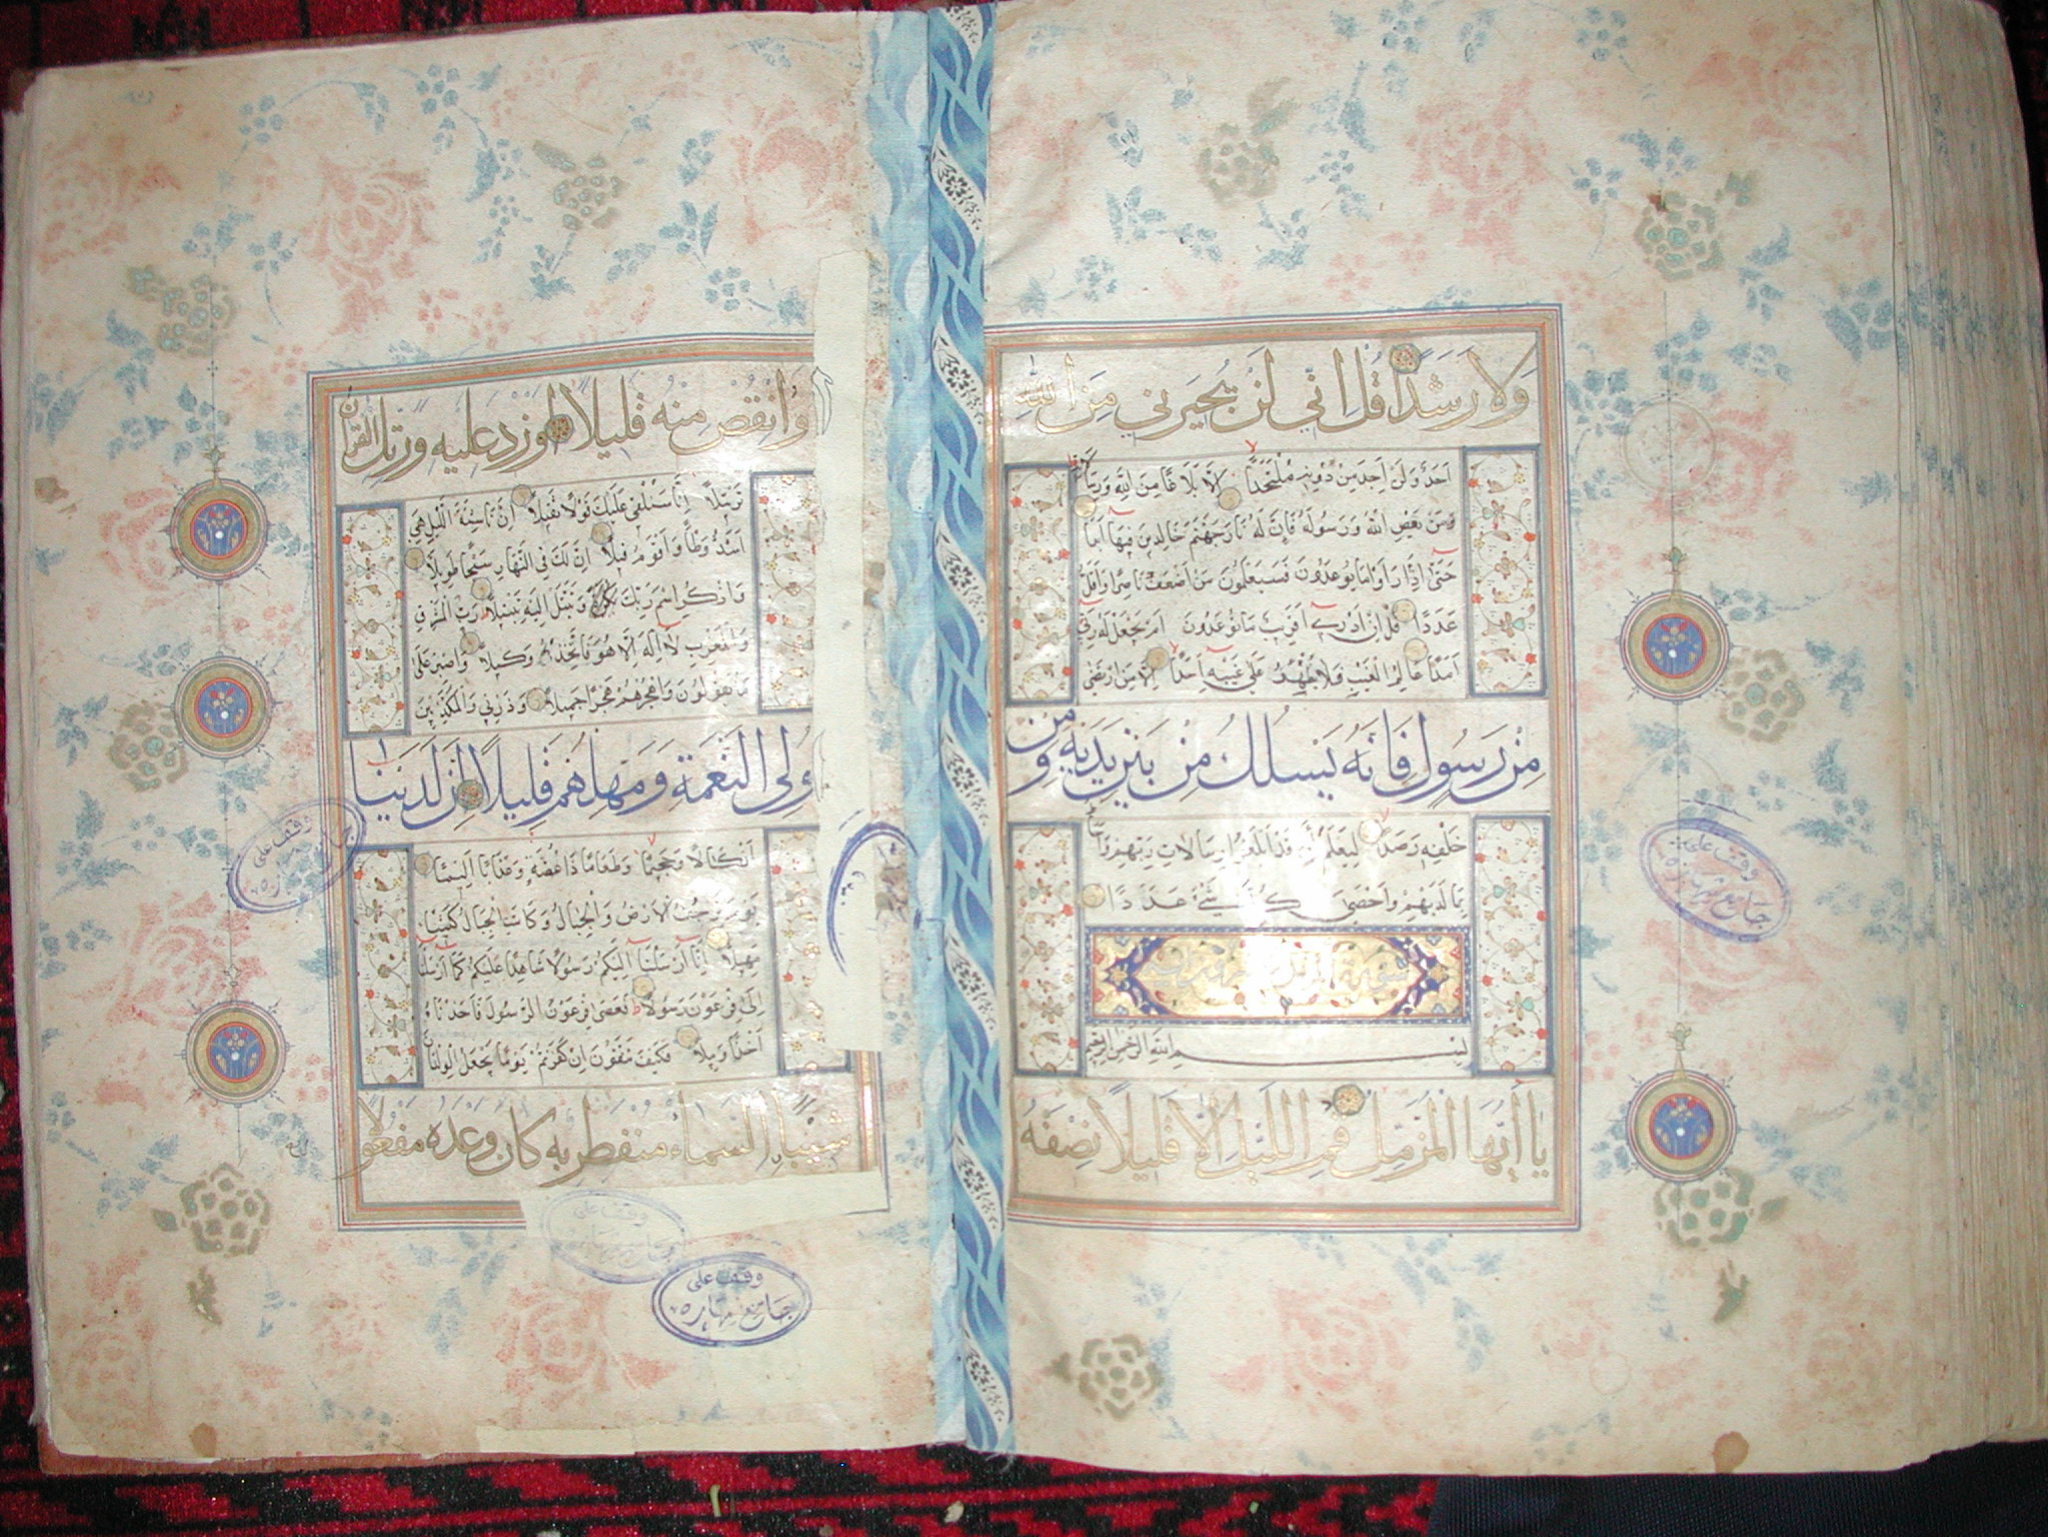 ولا رشدا قل اني لن يجيرني من الله
احد ولن اجد من دونه ملتحدا الا بلاغا من الله ورسالاته
ومن يعص الله ورسوله فان له نار جهنم خالدين فيها ابدا
حتى اذا راوا ما يوعدون فسيعلمون من اضعف ناصرا واقل
عددا قل ان ادري اقريب ما توعدون ام يجعل له ربي
امدا عالم الغيب فلا يظهر على غيبه احدا الا من ارتضى
من رسول فانه يسلك من بين يديه ومن
خلفه رصدا ليعلم ان قد ابلغوا رسالات ربهم واحاط
بما لديهم واحصى كل شيء عددا
سورة المزمل
بسم الله الرحمن الرحيم
يا ايها المزمل قم الليل الا قليلا نصفه
وقف على
جامع
وانقص منه قليلا او زد عليه ورتل القران
ترتيلا انا سنلقي عليك قولا ثقيلا ان ناشئة الليل هي
اشد وطأ واقوم قيلا ان لك في النهار سبحا طويلا
واذكر اسم ربك وتبتل اليه تبتيلا رب المشرق
والمغرب لا اله الا هو فاتخذه وكيلا واصبر على
ما يقولون واهجرهم هجرا جميلا وذرني والمكذبين
اولى النعمة ومهلهم قليلا ان لدينا
انكالا وجحيما وطعاما ذا غصة وعذابا اليما
يوم ترجف الارض والجبال وكانت الجبال كثيبا
مهيلا انا ارسلنا اليكم رسولا شاهدا عليكم كما ارسلنا
الى فرعون رسولا فعصى فرعون الرسول فاخذناه
اخذا وبيلا فكيف تتقون ان كفرتم يوما يجعل الولدان
شيبا السماء منفطر به كان وعده مفعولا
وقف على
وقف على
وقف على
جامع مهاره